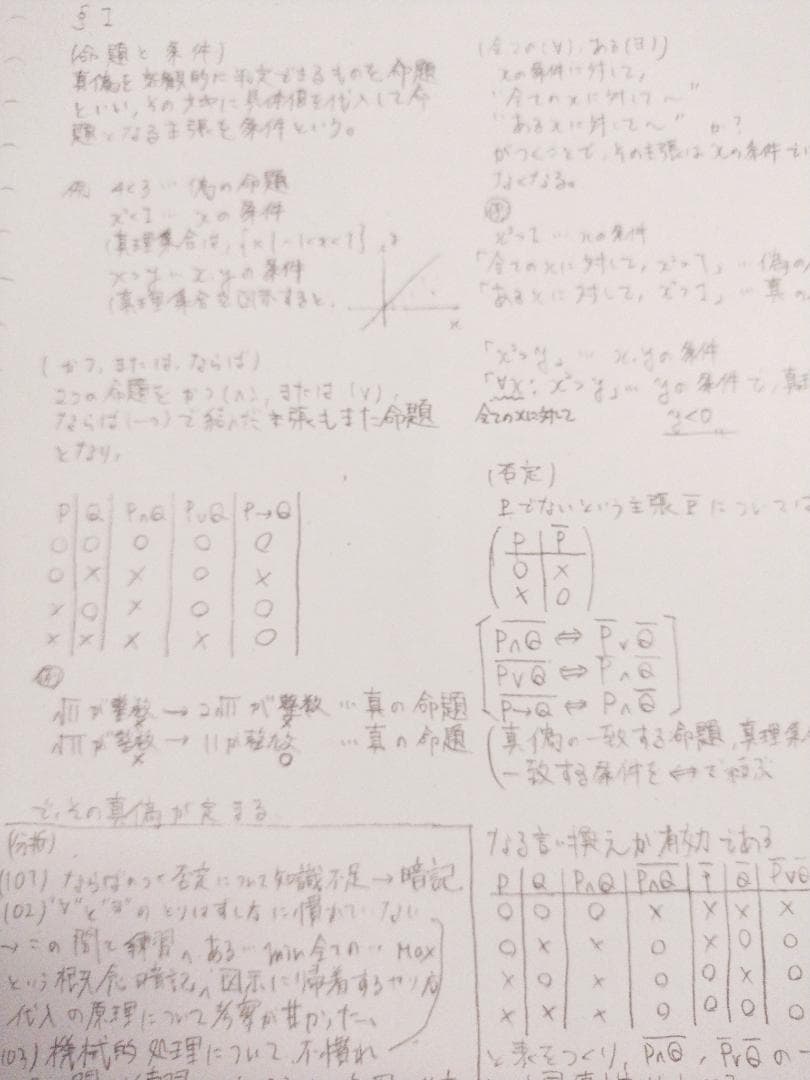 §1
(命題と条件)
真偽を客観的に判定できるものを命題
といい、その文字に具体値を代入して命
題となる主張を条件という。
例 4<3…偽の命題
x²<1…xの条件
(真理集合は、{x|-1<x<1}
x>y…x,yの条件
(真理集合を図示すると、
x
(かつ, または, ならば)
2つの命題をかつ(∧), または(∨),
ならば(→)で結んだ主張もまた命題
となり、
P Q P∧Q P∨Q P→Q
○ ○ ○ ○ ○
○ × × ○ ×
× ○ × ○ ○
× × × × ○
例
√11が整数→2√11が整数…真の命題
√11が整数→11が整数…真の命題
× ○
で、その真偽が定まる
(分析)
(101) ならばの 否定について知識不足→暗記
(102) "∀"と"∃"のとりはずし方に慣れていない
→この問で練習、ある…min全ての…Max
という概念暗記、図示に帰着するやり方
代入の原理について考察が甘かった、
(103) 機械的処理について不慣れ
(全ての(∀), ある(∃))
xの条件に対して,
"全てのxに対して~"
"あるxに対して~" か?
がつくことで、その主張はxの条件で
なくなる。
例
x²>1…xの条件
「全てのxに対して, x²>1」…偽の
「あるxに対して, x²>1」…真の
「x²>y」…x,yの条件
「∀x: x²>y」…yの条件で, 真理
全てのxに対して y<0
(否定)
Pでないという主張P̅については
P P̅
○ ×
× ○
P∧Q̅ ⇔ P̅∨Q̅
P∨Q̅ ⇔ P̅∧Q̅
P→Q̅ ⇔ P∧Q̅
(真偽の一致する命題, 真理集
一致する条件を⇔で結ぶ
なる言い換えが有効である
P Q P∧Q P∧Q̅ P̅ Q̅ P̅∨Q̅
○ ○ ○ × × × ×
○ × × ○ × ○ ○
× ○ × ○ ○ × ○
× × × ○ ○ ○ ○
と表をつくり, P∧Q̅, P̅∨Q̅の一